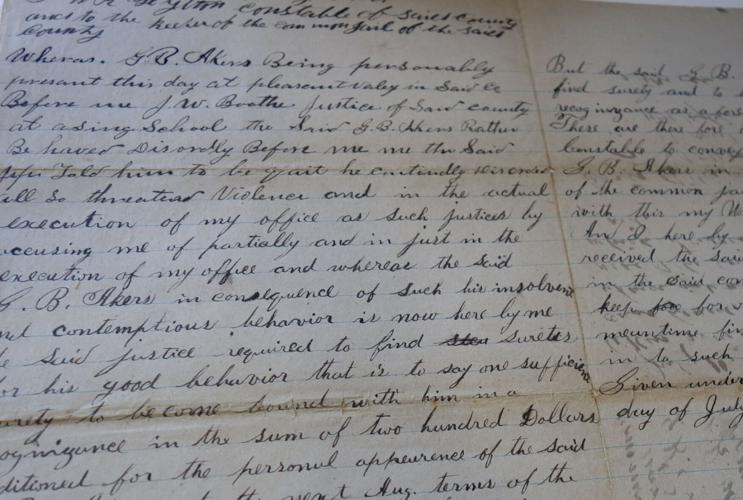 Constable of Said County
and to the keeper of the common Jail of the said
County
Wheras. G.B. Akers Being personably
present this day at pleasant valey in Said Co
Before me J.W. Boothe Justice of Said County
at a Sing School the Said G.B. Akers Rather
Be haved Disordly Before me me the Said
Told him to be quit he
all so threatend Violence and in the actual
execution of my office as such justices by
accusing me of partially and in just in the
execution of my office and whereas the said
G. B. Akers in consequence of such his insolvent
and contemptious behavior is now here by me
Said justice required to find suretes
for his good behavior that is to say one sufficient
to become bound with him in a
in the sum of two hundred Dollars
for the personal appearence of the said
the next Aug. terms of the
But the said G. B.
find surety and to
as a
These are there fore
Constable to convey
G. B. Akers in
of the common
with this my
And I here by
received the said
in the Said
keep for
meantime
in to such
Given under
day of July